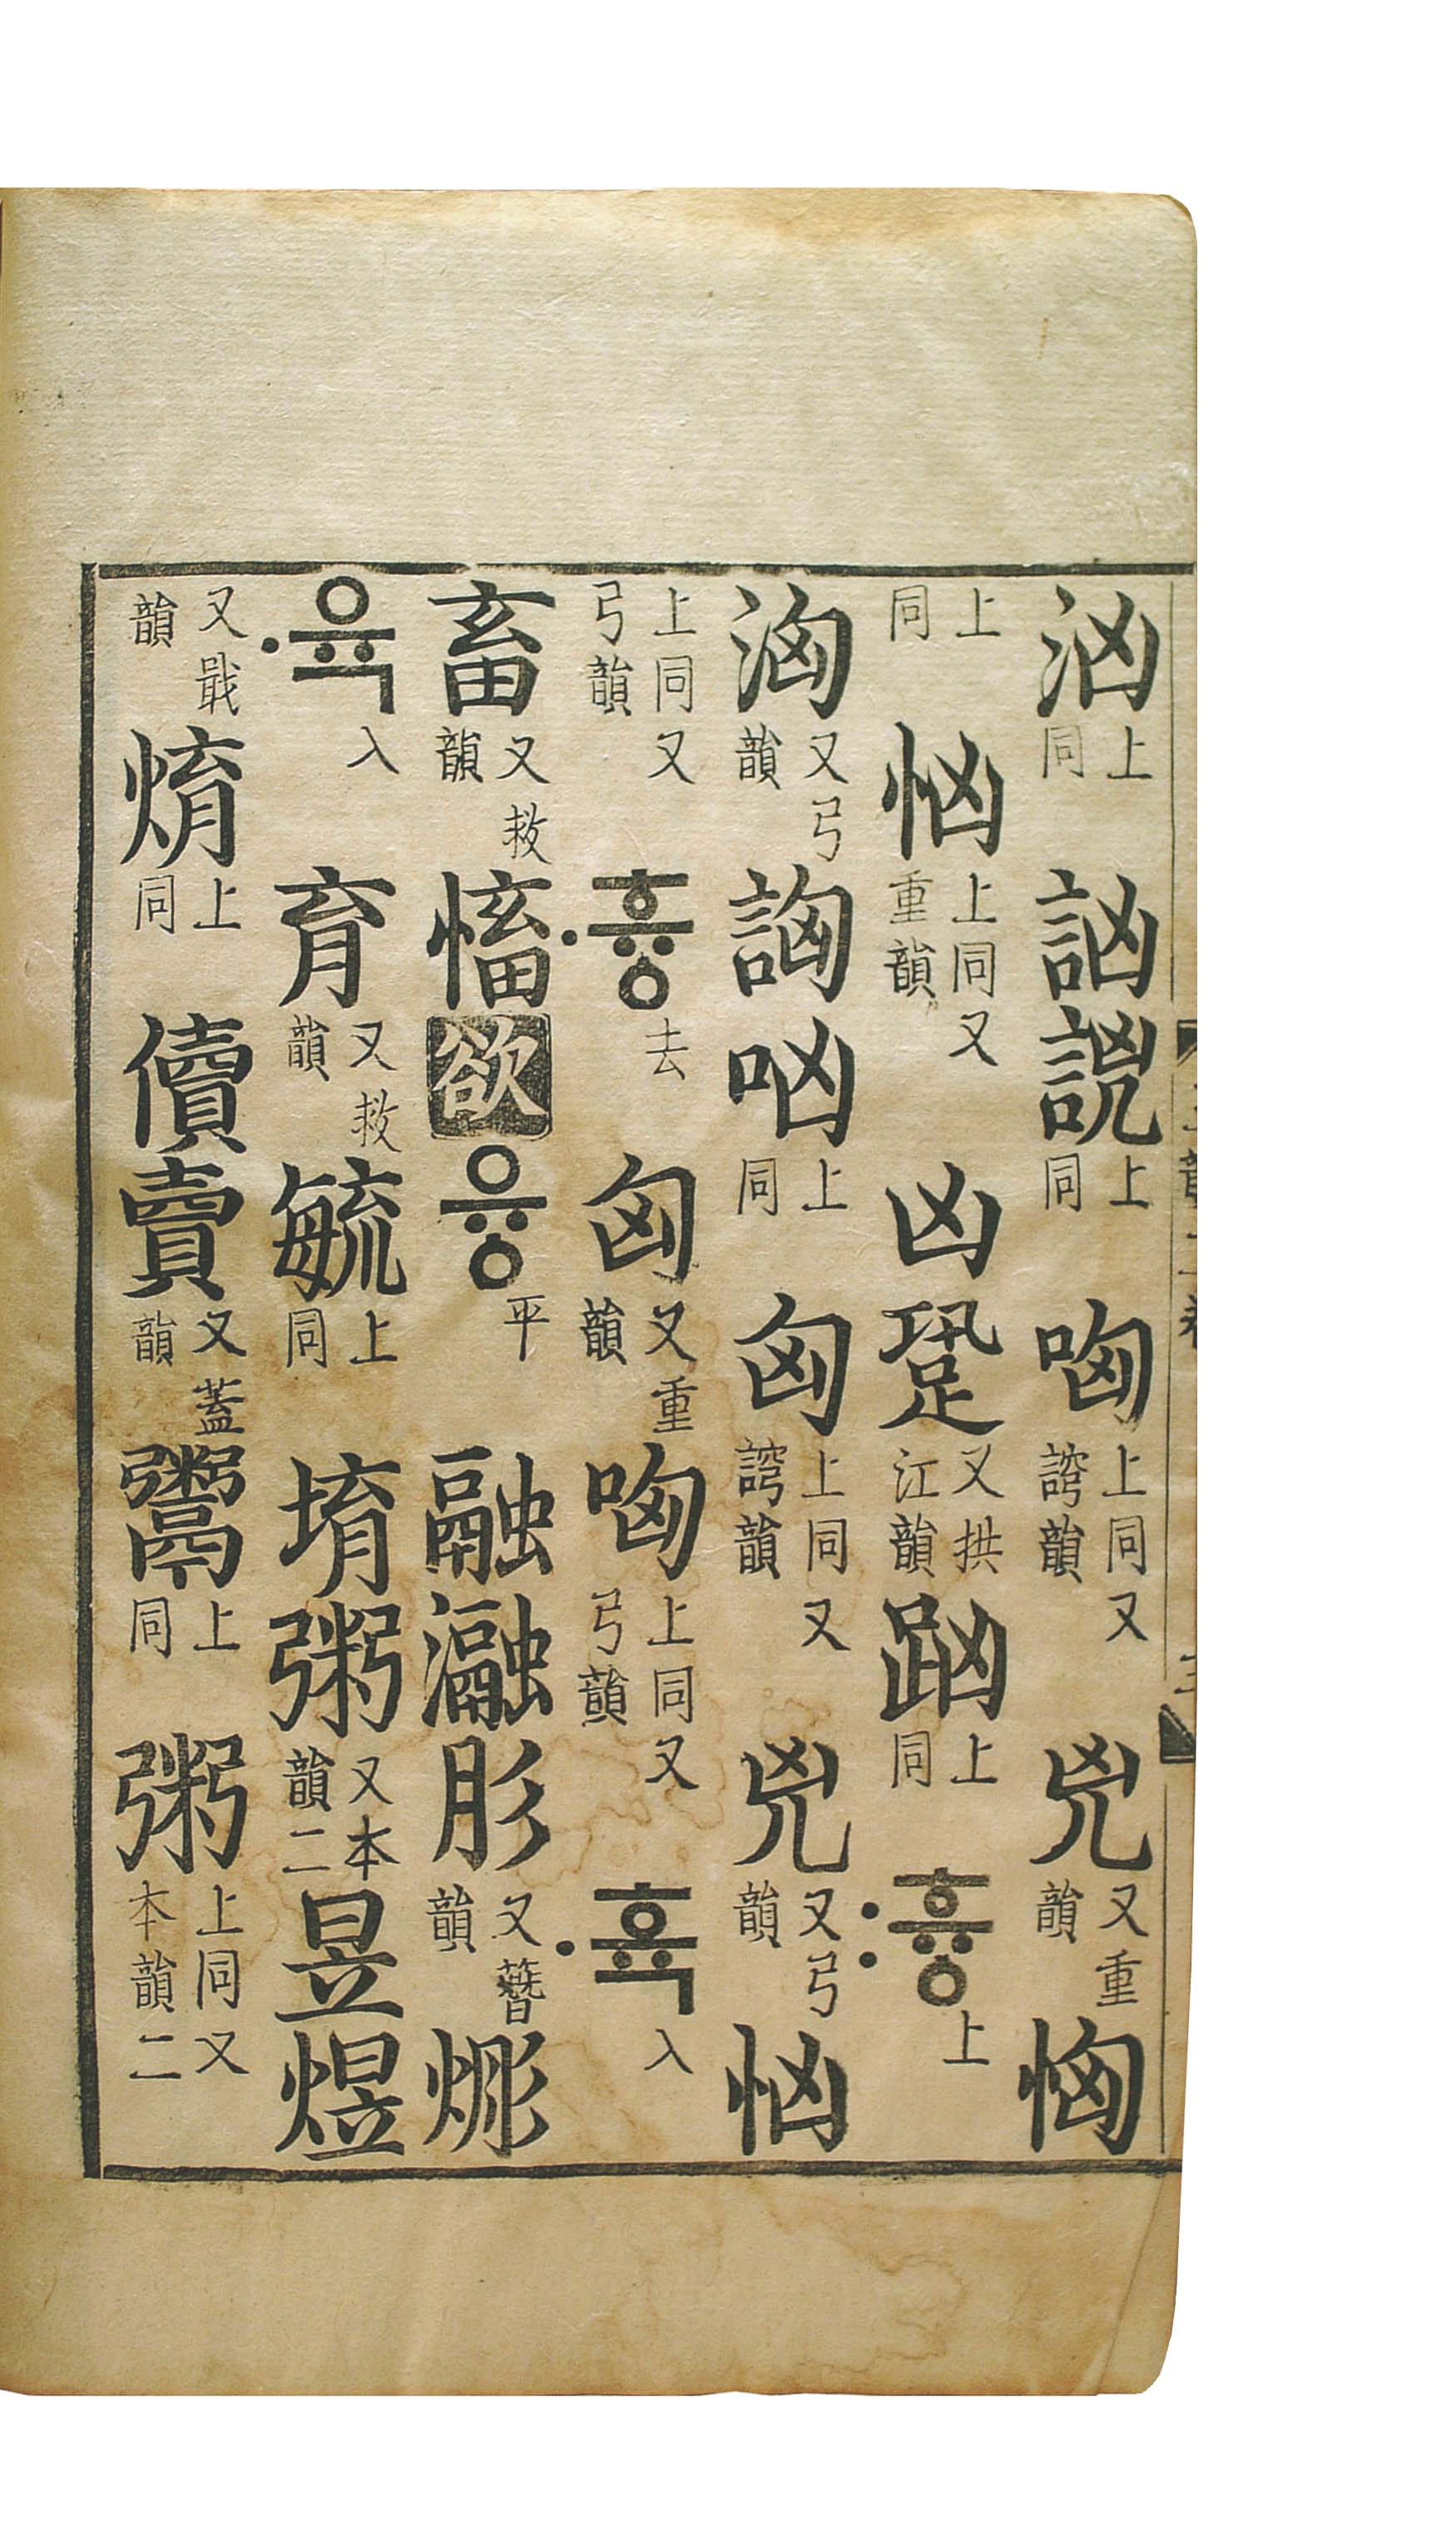 汹上同訩上同哅上同又韻兇又重韻恟
上同忷上同又重韻凶跫又拱江韻上同〯흉上
洶又弓韻詾㕼上同匈上同又韻兇又弓韻忷
上同又弓韻〮흉去匈又重韻哅上同又弓韻〮휵入
畜又救韻慉欲융平融瀜肜又韻
〮육入育又救韻毓上同堉粥又本韻二昱煜
又韻焴上同儥賣又蓋韻鬻上同粥上同又本韻二